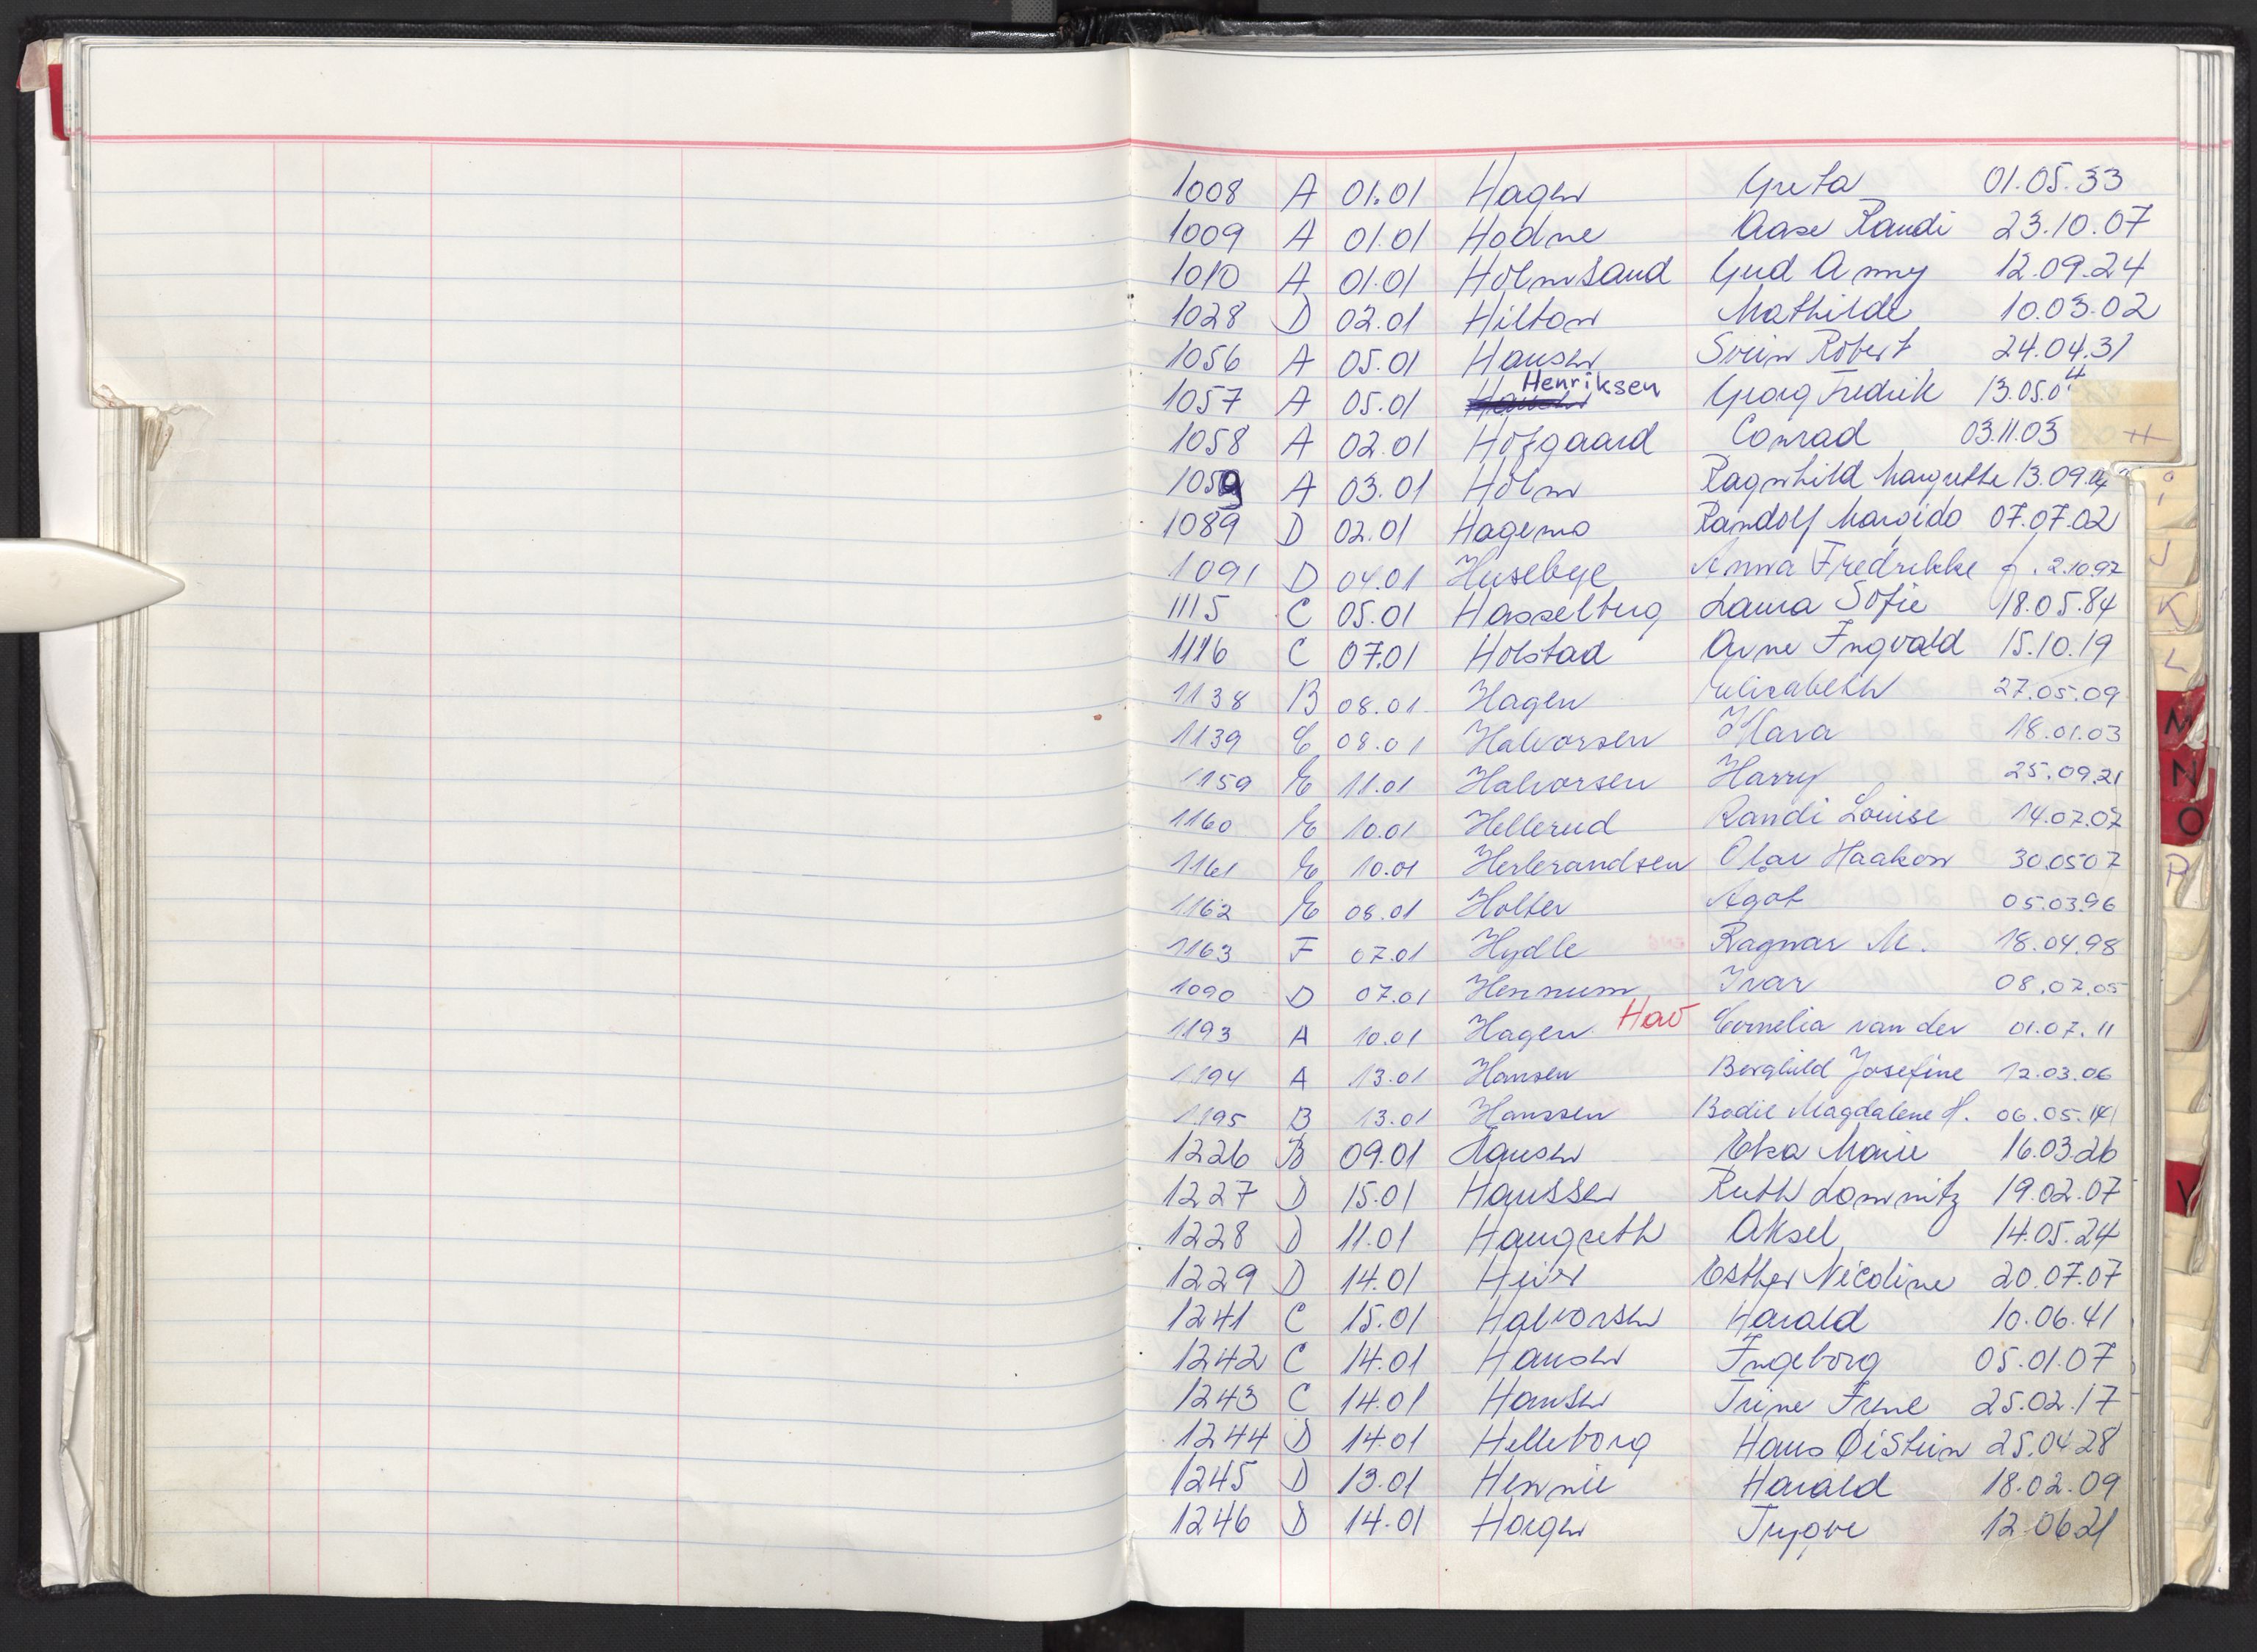 1008 A 01.01 Hagen Greta 01.05.33
1009 A 01.01 Hodne Aase Randi 23.10.07
1010 A 01.01 Holmsand Gud Anny 12.09.24
1028 D 02.01 Hilton Mathilde 10.03.02
1056 A 05.01 Hansen Svein Robert 24.04.31
1057 A 05.01 Henriksen Georg Fredrik 13.05.04
1058 A 02.01 Hofgaard Conrad 03.11.03 H
1059 A 03.01 Holm Ragnhild Margrethe 13.09.
1089 D 02.01 Hagemo Randolf Margido 07.07.02
1091 D 04.01 Husebye Anna Fredrikke f. 2.10.97
1115 C 05.01 Hasselberg Laura Sofie 18.05.84
1116 C 07.01 Holstad Arne Ingvald 15.10.19
1138 B 08.01 Hagen Elisabeth 27.05.09
1139 C 08.01 Halvorsen Klara 18.01.03
1159 E 11.01 Halvorsen Harry 25.09.21
1160 E 10.01 Hellerud Randi Louise 14.07.07
1161 E 10.01 Herbrandsen Olav Haakon 30.05.07
1162 E 08.01 Holter Agot 05.03.96
1163 F 07.01 Hydle Ragnar M. 18.04.98
1090 D 07.01 Hennum Ivar 08.07.05
1193 A 10.01 Hagen Hav Cornelia van der 01.07.11
1194 A 13.01 Hansen Borghild Josefine 12.03.06
1195 B 13.01 Hanssen Bodil Magdalene H. 06.05.14
1226 B 09.01 Hansen Elsa Marie 16.03.26
1227 D 15.01 Hanssen Ruth Lommitz 19.02.07
1228 D 11.01 Haugseth Aksel 14.05.24
1229 D 14.01 Heier Esther Nicoline 20.07.07
1241 C 15.01 Halvorsen Harald 10.06.41
1242 C 14.01 Hansen Ingeborg 05.01.07
1243 C 14.01 Hansen Trine Irene 25.02.17
1244 D 14.01 Helleborg Hans Øistein 25.04.28
1245 D 13.01 Hennie Harald 18.02.09
1246 D 14.01 Horgen Trygve 12.06.21
I
J
K
L
M
N
O
P
V